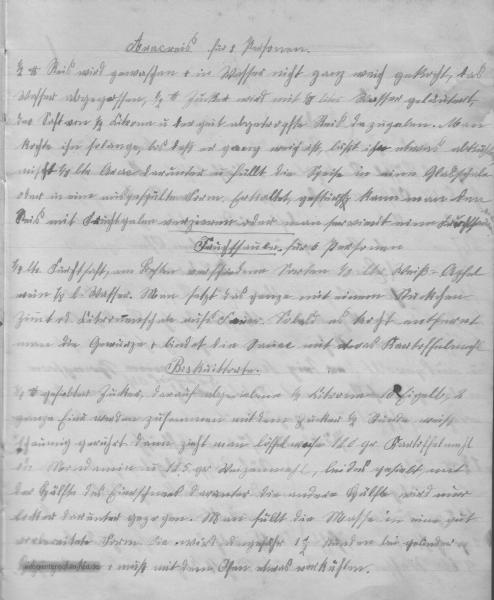 Aracreis für 8 Personen.
½ ℔ Reis wird gewaschen + in Wasser nicht ganz weich gekocht, das
Wasser abgegossen, ½ ℔ Zucker wird mit ⅛ liter Wasser geläutert,
der Saft von ½ Citrone u der gut abgetropfte Reis dazugeben. Man
kocht ihn solange, bis daß er ganz weich ist, läßt ihn etwas abkühlen
mischt Arac darunter u füllt die Speise in eine Glasschale
oder in eine ausgespülte Form. Erkaltet, gestürzt kann man den
Reis mit Fruchtgelee verzieren oder man serviert eine
Fruchtsauce. für 6 Personen
Fruchtsaft, am Besten verschiedene Sorten Weiß- Apfel
wein Wasser. Man setzt das ganze mit einem Stückchen
Zimmt Citronenschale aufs Feuer. Sobald es kocht entfernt
man die Gewürze + bindet die Sauce mit etwas Kartoffelmehl
Biskuittorte.
℔ gesiebter Zucker, darauf abgeriebene ½ Citrone Eigelb, 2
ganze Eier werden zusammen mit dem Zucker ½ Stunde
schaumig gerührt dann zieht man löffelweise 120 gr. Kartoffelmehl
Mondamin u 125 gr Weizenmehl, beides gesiebt mit
der Hälfte des Eierschnee darunter die andere Hälfte wird nur
locker darunter gezogen. Man füllt die Masse in eine gut
vorbereitete Form die wird ungefähr Stunden bei gelinder
+ muß mit dem Ofen etwas verkühlen.